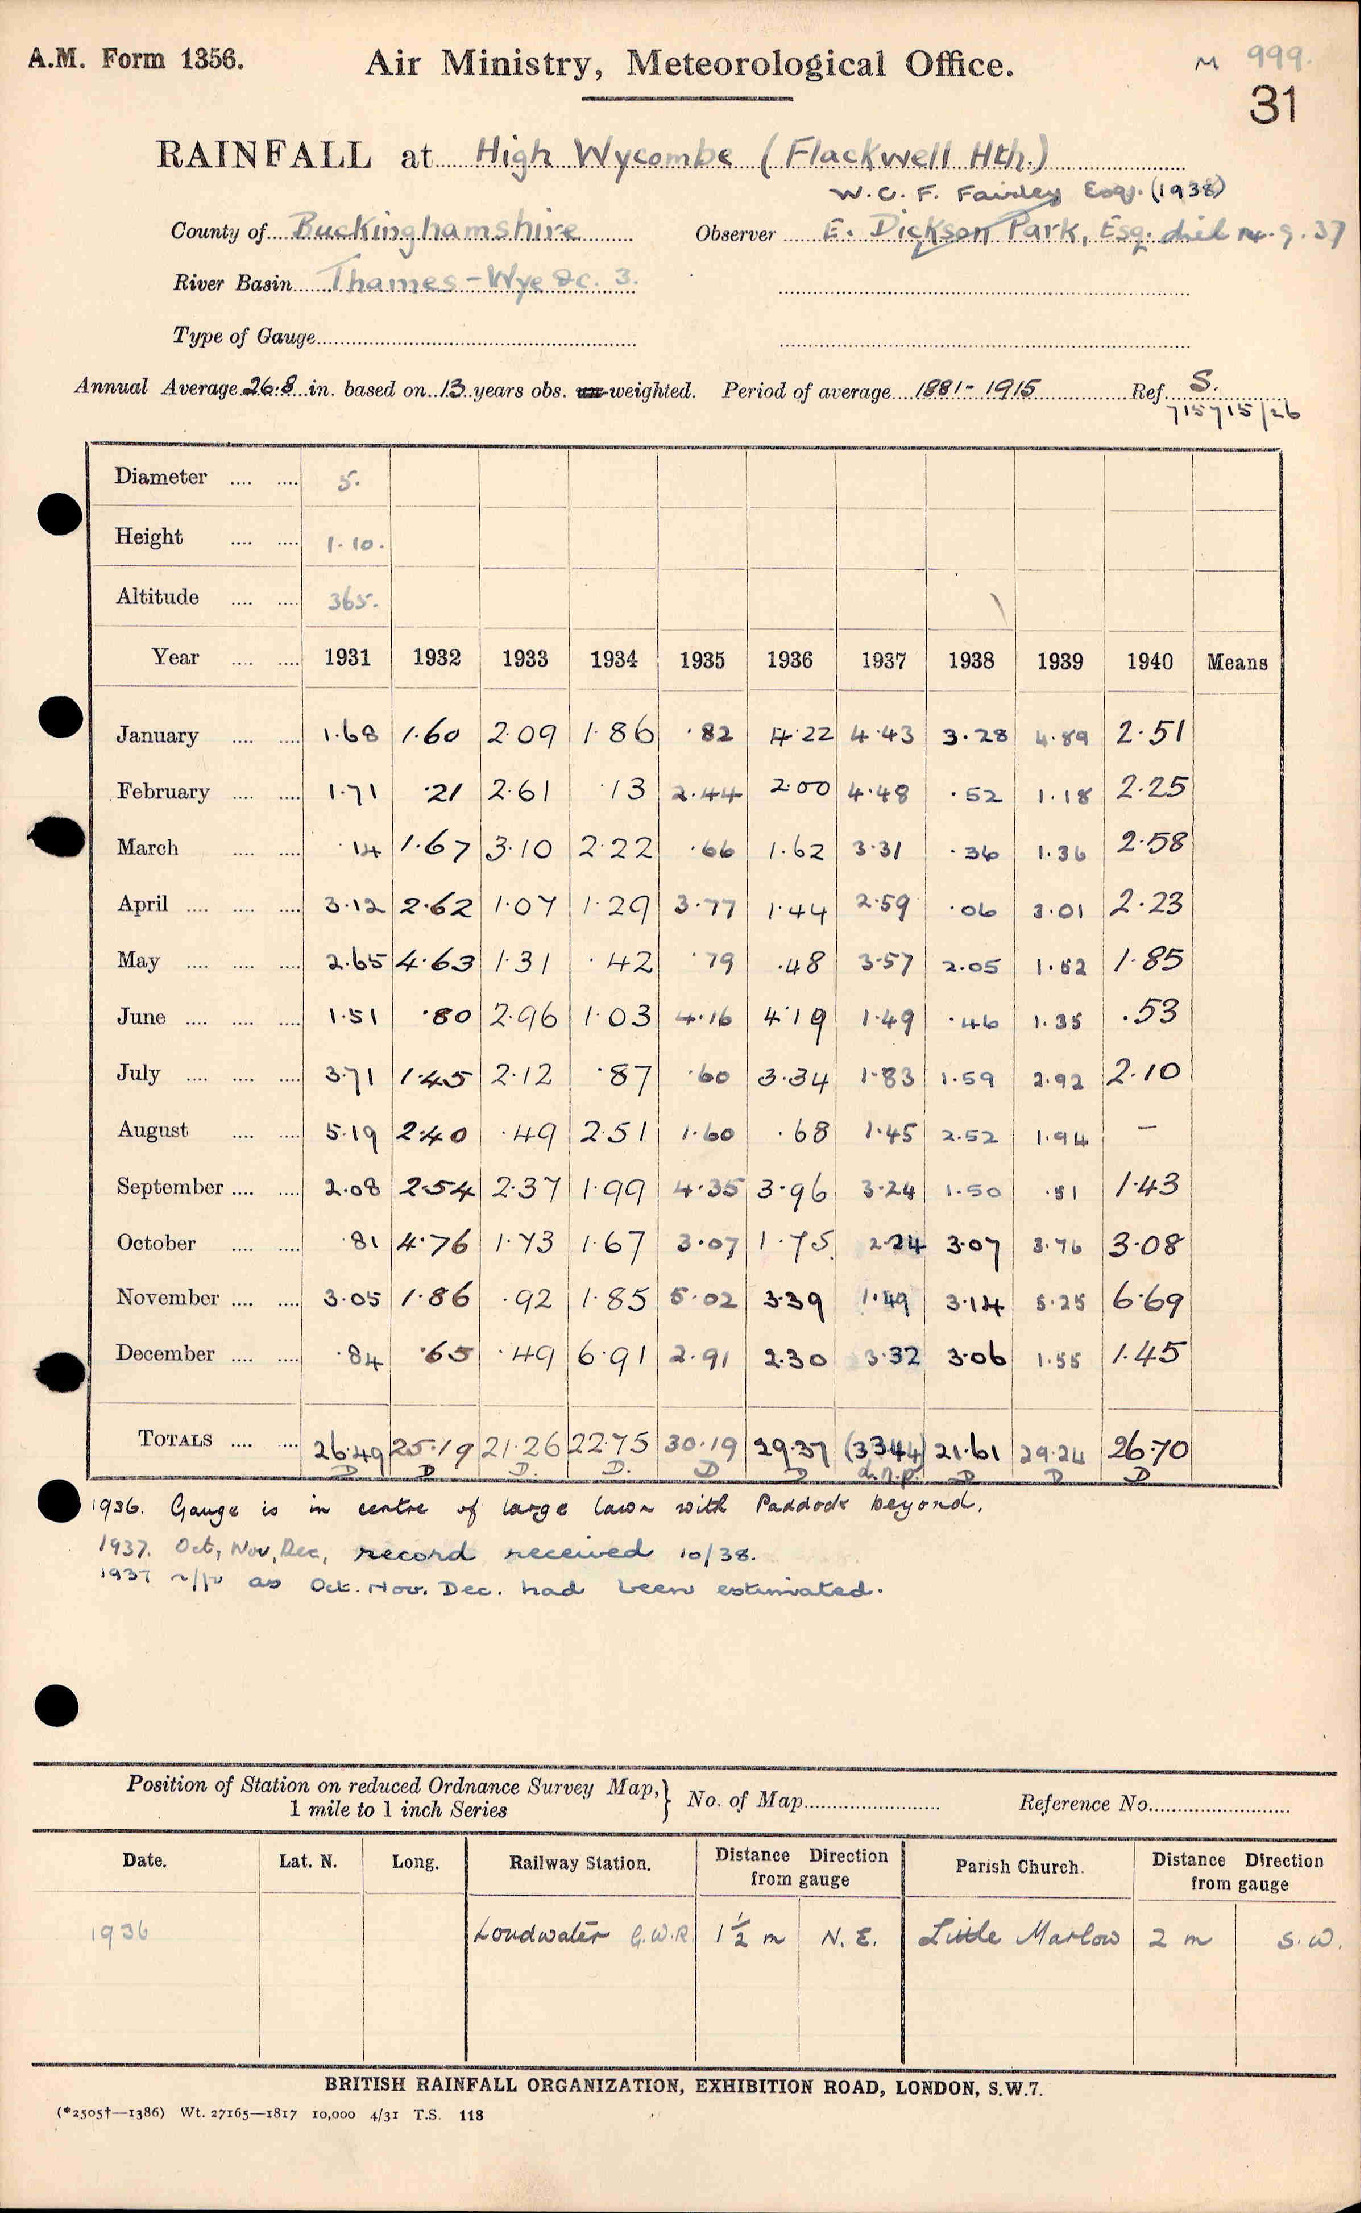 A.M. Form 1356.
Air Ministry, Meteorological Office.
M 999.
31
RAINFALL at High Wycombe (Flackwell Hth.)
W. C. F. Fairley Esq. (1938)
County of Buckinghamshire Observer E. Dickson Park, Esq. died 9. 37
River Basin Thames - Wye &c. 3.
Type of Gauge
Annual Average 26.8 in. based on 13 years obs. un-weighted. Period of average 1881-1915 Ref. S.
715715/26
Diameter .... .... 5.
Height .... .... 1.10.
Altitude .... .... 365.
Year .... .... 1931 1932 1933 1934 1935 1936 1937 1938 1939 1940 Means
January .... .... 1.68 1.60 2.09 1.86 .82 4.22 4.43 3.28 4.89 2.51
February .... .... 1.71 .21 2.61 .13 2.44 2.00 4.48 .52 1.18 2.25
March .... .... .14 1.67 3.10 2.22 .66 1.62 3.31 .36 1.36 2.58
April .... .... .... 3.12 2.62 1.07 1.29 3.77 1.44 2.59 .06 3.01 2.23
May .... .... .... 2.65 4.63 1.31 .42 .79 .48 3.57 2.05 1.52 1.85
June .... .... .... 1.51 .80 2.96 1.03 4.16 4.19 1.49 .46 1.35 .53
July .... .... .... 3.71 1.45 2.12 .87 .60 3.34 1.83 1.59 2.92 2.10
August .... .... 5.19 2.40 .49 2.51 1.60 .68 1.45 2.52 1.94 —
September .... .... 2.08 2.54 2.37 1.99 4.35 3.96 3.24 1.50 .51 1.43
October .... .... .81 4.76 1.73 1.67 3.07 1.75 2.24 3.07 3.76 3.08
November .... .... 3.05 1.86 .92 1.85 5.02 3.39 1.49 3.14 5.25 6.69
December .... .... .84 .65 .49 6.91 2.91 2.30 3.32 3.06 1.55 1.45
TOTALS .... .... 26.49 25.19 21.26 22.75 30.19 29.37 (33.44) 21.61 29.24 26.70
D D D. D. D D d.n.p. D D D
1936. Gauge is in centre of large lawn with Paddock beyond.
1937. Oct, Nov, Dec, record received 10/38.
1937 n/p as Oct. Nov. Dec. had been estimated.
Position of Station on reduced Ordnance Survey Map, } No. of Map Reference No.
1 mile to 1 inch Series
Date. Lat. N. Long. Railway Station. Distance Direction from gauge Parish Church. Distance Direction from gauge
1936 Loudwater G.W.R 1½ m N. E. Little Marlow 2 m S.W.
BRITISH RAINFALL ORGANIZATION, EXHIBITION ROAD, LONDON, S.W.7.
(*2505†—1386) Wt. 27165—1817 10,000 4/31 T.S. 118